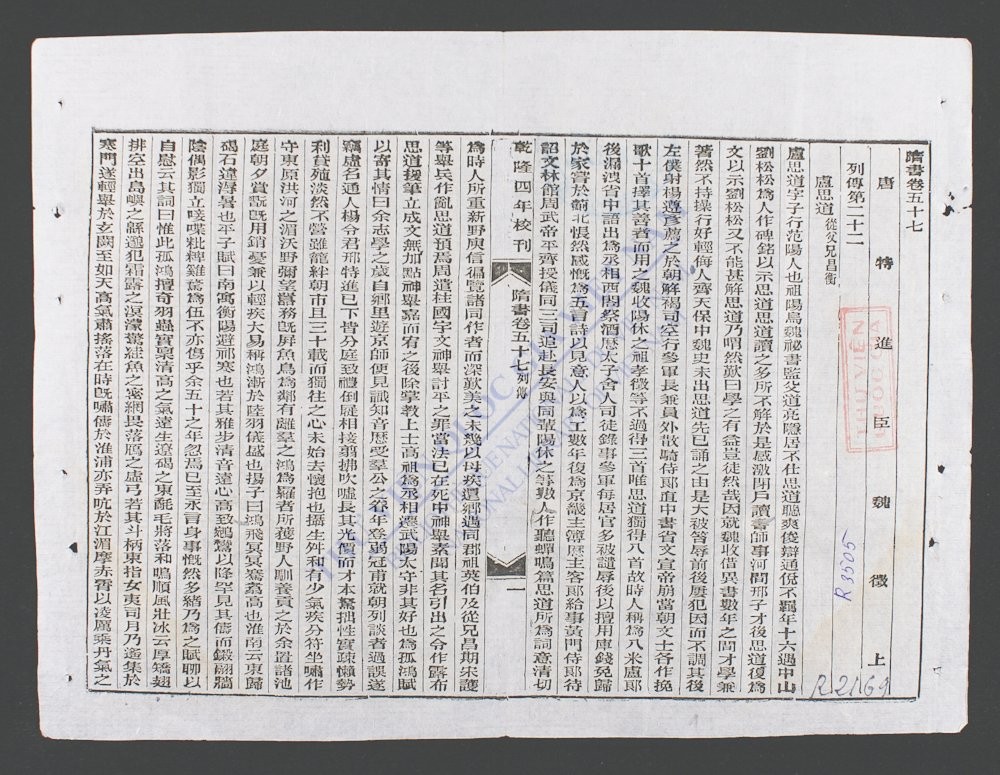 隋書卷五十七
唐特進臣魏徵上
列傳第二十二
盧思道 從父兄昌衡
盧思道字子行范陽人也祖陽烏魏祕書監父道亮隱居不仕思道聰爽俊辯通侻不羈年十六遇中山
劉松松爲人作碑銘以示思道思道讀之多所不解於是感激閉戶讀書師事河間邢子才後思道復爲
文以示劉松松又不能甚解思道乃喟然歎曰學之有益豈徒然哉因就魏收借異書數年之間才學兼
著然不持操行好輕侮人齊天保中魏史未出思道先已誦之由是大被笞辱前後屢犯因而不調其後
左僕射楊遵彥薦之於朝解褐司空行參軍長兼員外散騎侍郞直中書省文宣帝崩當朝文士各作挽
歌十首擇其善者而用之魏收陽休之祖孝徵等不過得三首唯思道獨得八首故時人稱爲八米盧郞
後漏洩省中語出爲丞相西閤祭酒歷太子舍人司徒錄事參軍每居官多被譴辱後以擅用庫錢免歸
於家嘗於薊北悵然感慨爲五言詩以見意人以爲工數年復爲京畿主簿歷主客郞給事黃門侍郞待
詔文林館周武帝平齊授儀同三司追赴長安與同輩陽休之等數人作聽蟬鳴篇思道所爲詞意清切
乾隆四年校刊
隋書卷五十七 列傳
一
爲時人所重新野庾信徧覽諸同作者而深歎美之未幾以母疾還鄉遇同郡祖英伯及從兄昌期宋護
等舉兵作亂思道預焉周遣柱國宇文神舉討平之罪當法已在死中神舉素聞其名引出之令作露布
思道援筆立成文無加點神舉嘉而宥之後除掌教上士高祖爲丞相遷武陽太守非其好也爲孤鴻賦
以寄其情曰余志學之歲自鄉里遊京師便見識知音歷受羣公之眷年登弱冠甫就朝列談者過誤遂
竊虛名通人楊令君邢特進已下皆分庭致禮倒屣相接翦拂吹噓長其光價而才本駑拙性實疎懶勢
利貨殖淡然不營雖籠絆朝市且三十載而獨往之心未始去懷抱也攝生舛和有少氣疾分符坐嘯作
守東原洪河之湄沃野彌望囂務旣屏魚鳥爲鄰有離羣之鴻爲羅者所獲野人馴養貢之於余置諸池
庭朝夕賞翫旣用銷憂兼以輕疾大易稱鴻漸於陸羽儀盛也揚子曰鴻飛冥冥騫翥高也淮南云東歸
碣石違溽暑也平子賦曰南寓衡陽避祁寒也若其雅步清音遠心高致鵷鸞以降罕見其儔而鎩翮牆
陰偶影獨立唼喋粃粺雞鶩爲伍不亦傷乎余五十之年忽焉已至永言身事慨然多緒乃爲之賦聊以
自慰云其詞曰惟此孤鴻擅奇羽蟲實稟清高之氣遠生遼碣之東毻毛將落和鳴順風壯冰云厚矯翅
排空出島嶼之緜邈犯霜露之溟濛驚絓魚之密網畏落鴈之虛弓若其斗柄東指女夷司月乃遙集於
寒門遂輕舉於玄闕至如天高氣肅搖落在時旣嘯儔於淮浦亦弄吭於江湄摩赤霄以凌厲乘丹氣之
THƯ VIỆN
QUỐC GIA
R 3505
R2169
1